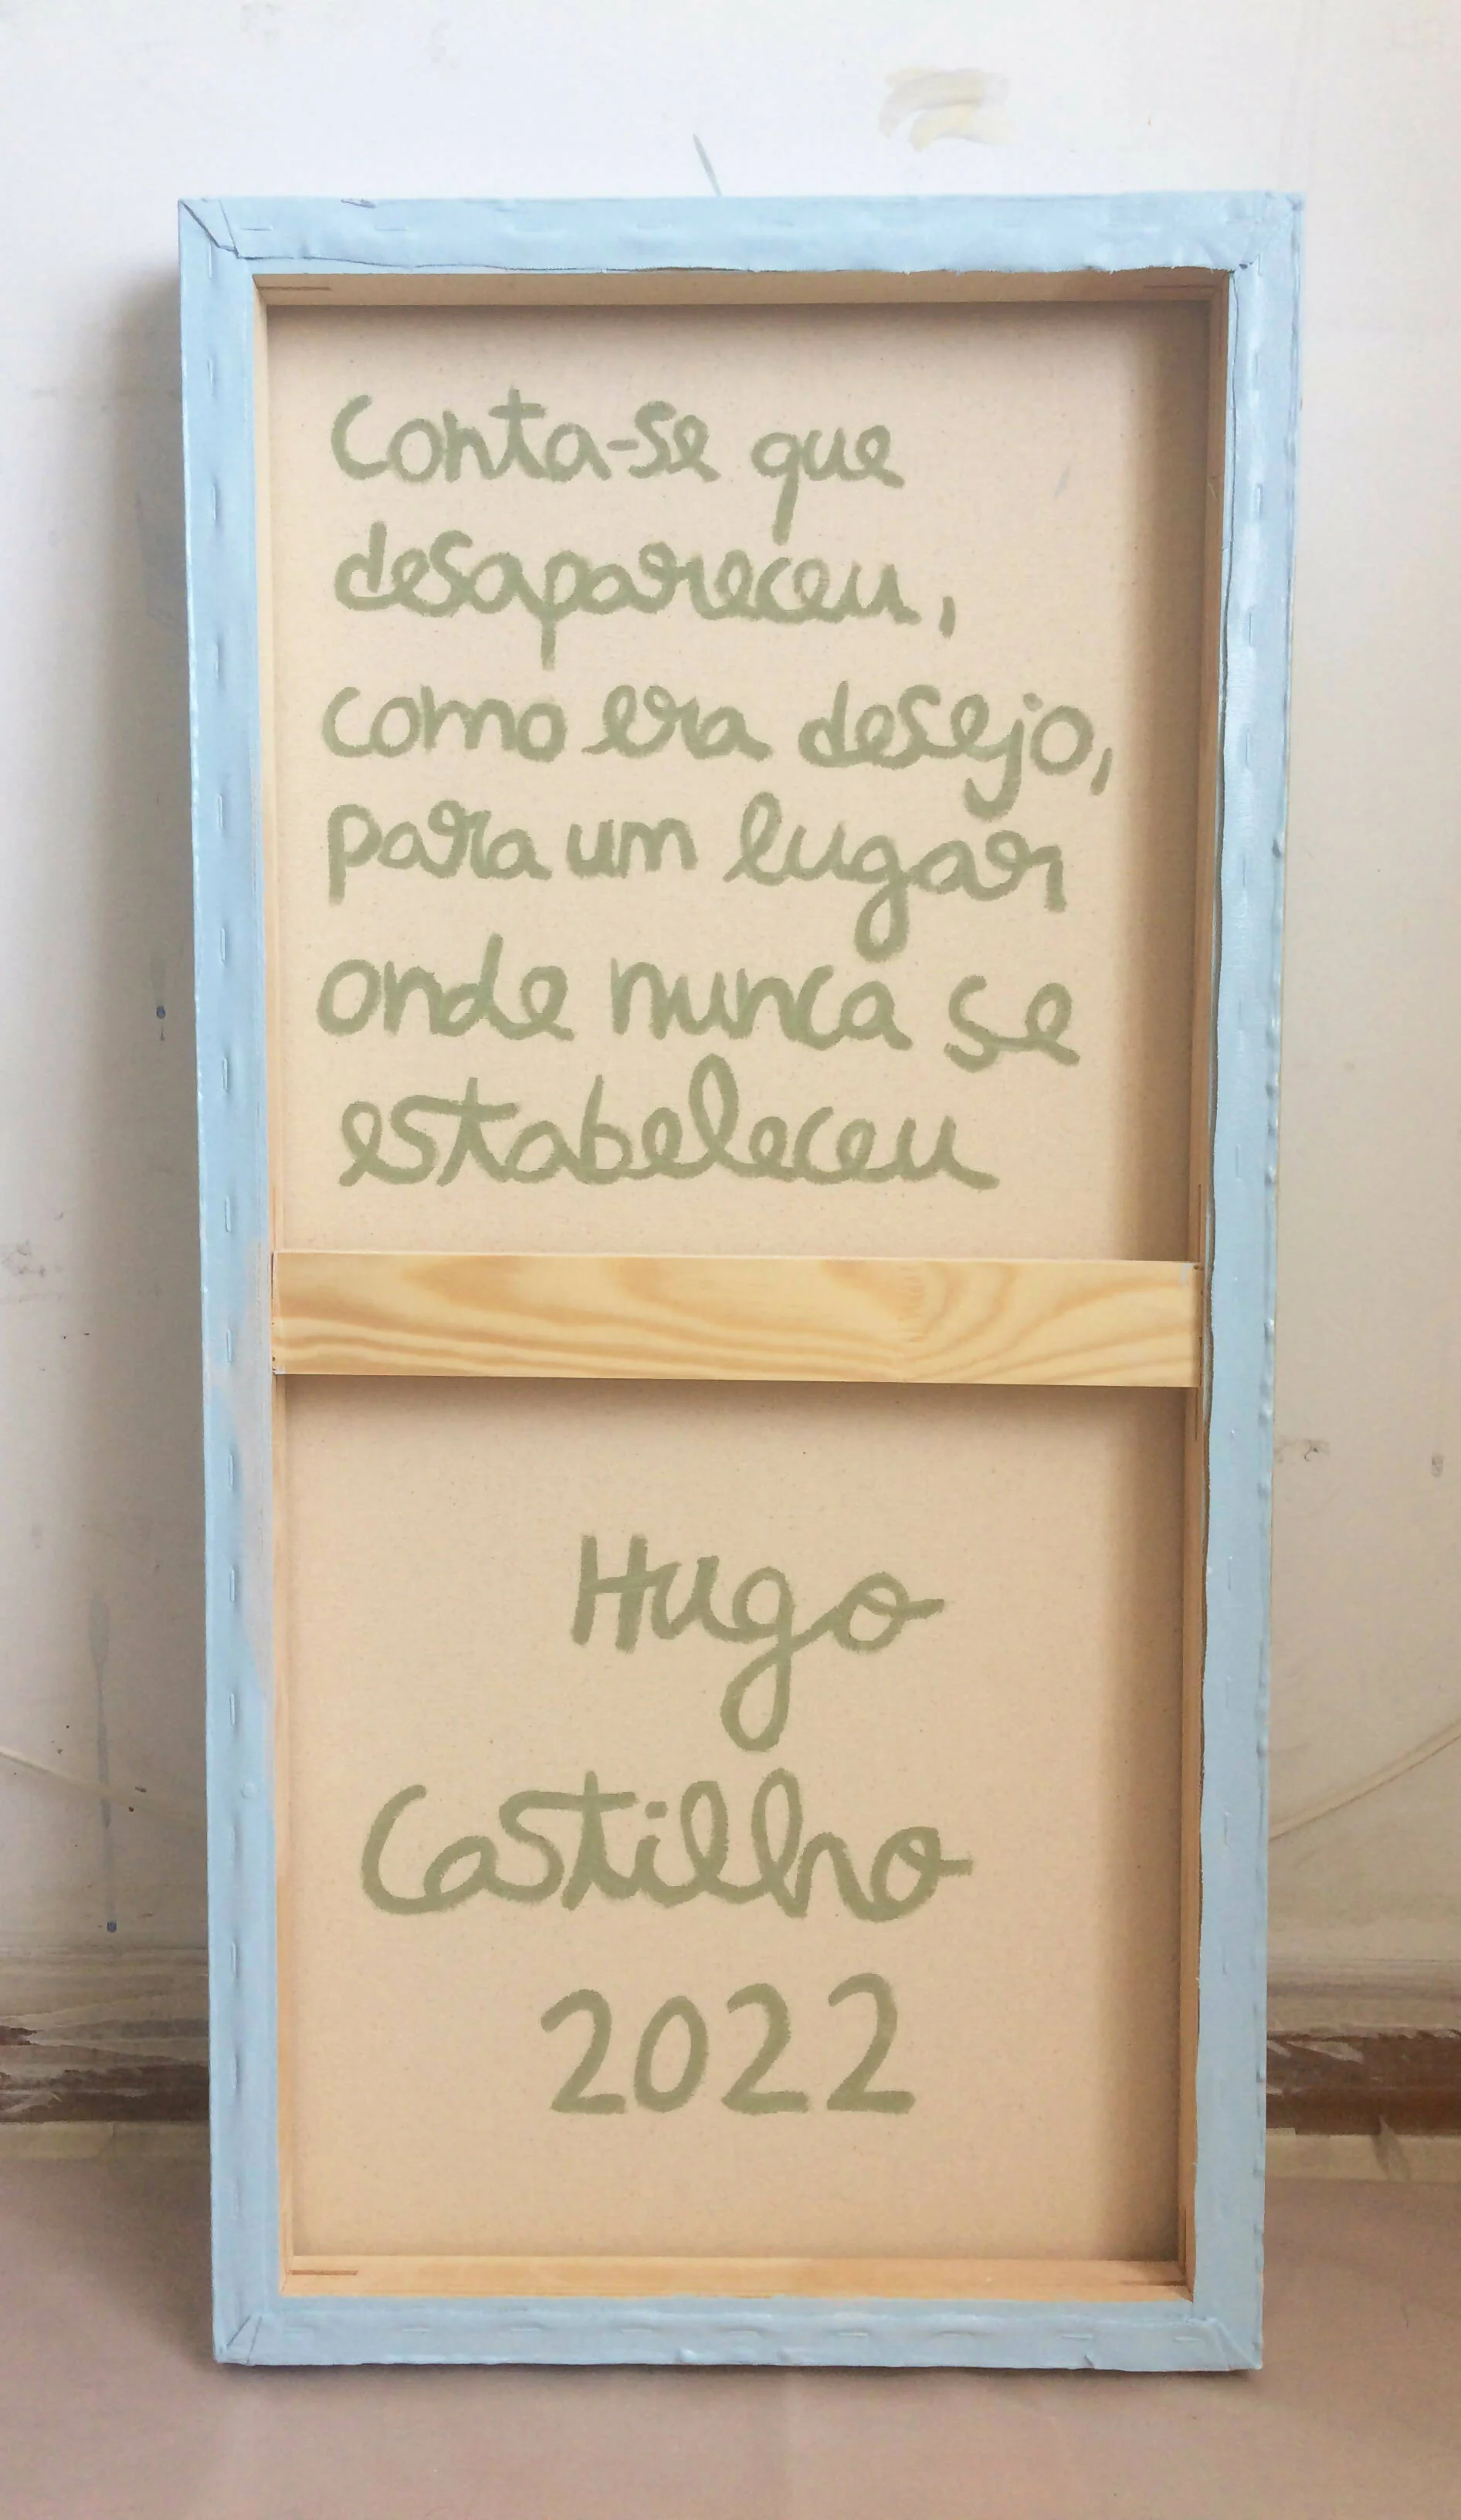 Conta-se que
desapareceu,
como era desejo,
para um lugar
onde nunca se
estabeleceu
Hugo
Castilho
2022